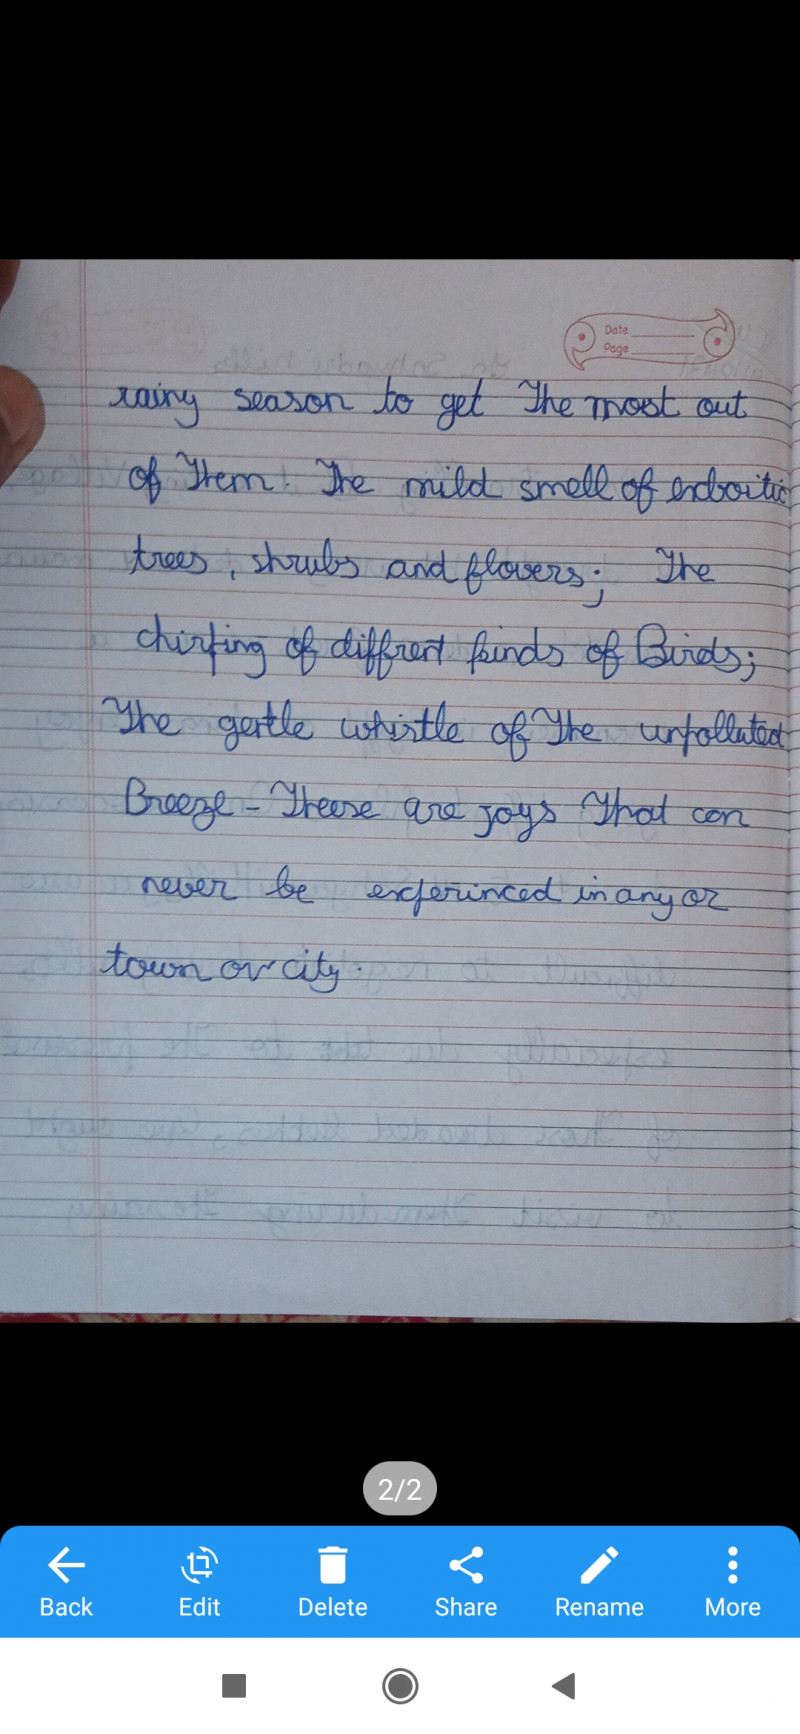 Date
Page
rainy season to get The most out
of Them. The mild smell of exboitic
trees, shrubs and flovers; The
chirping of diffrent kinds of Birds;
The gentle whistle of The unpolluted
Breeze - Theese are joys That can
never be experinced in any or
town or city.
2/2
Back
Edit
Delete
Share
Rename
More